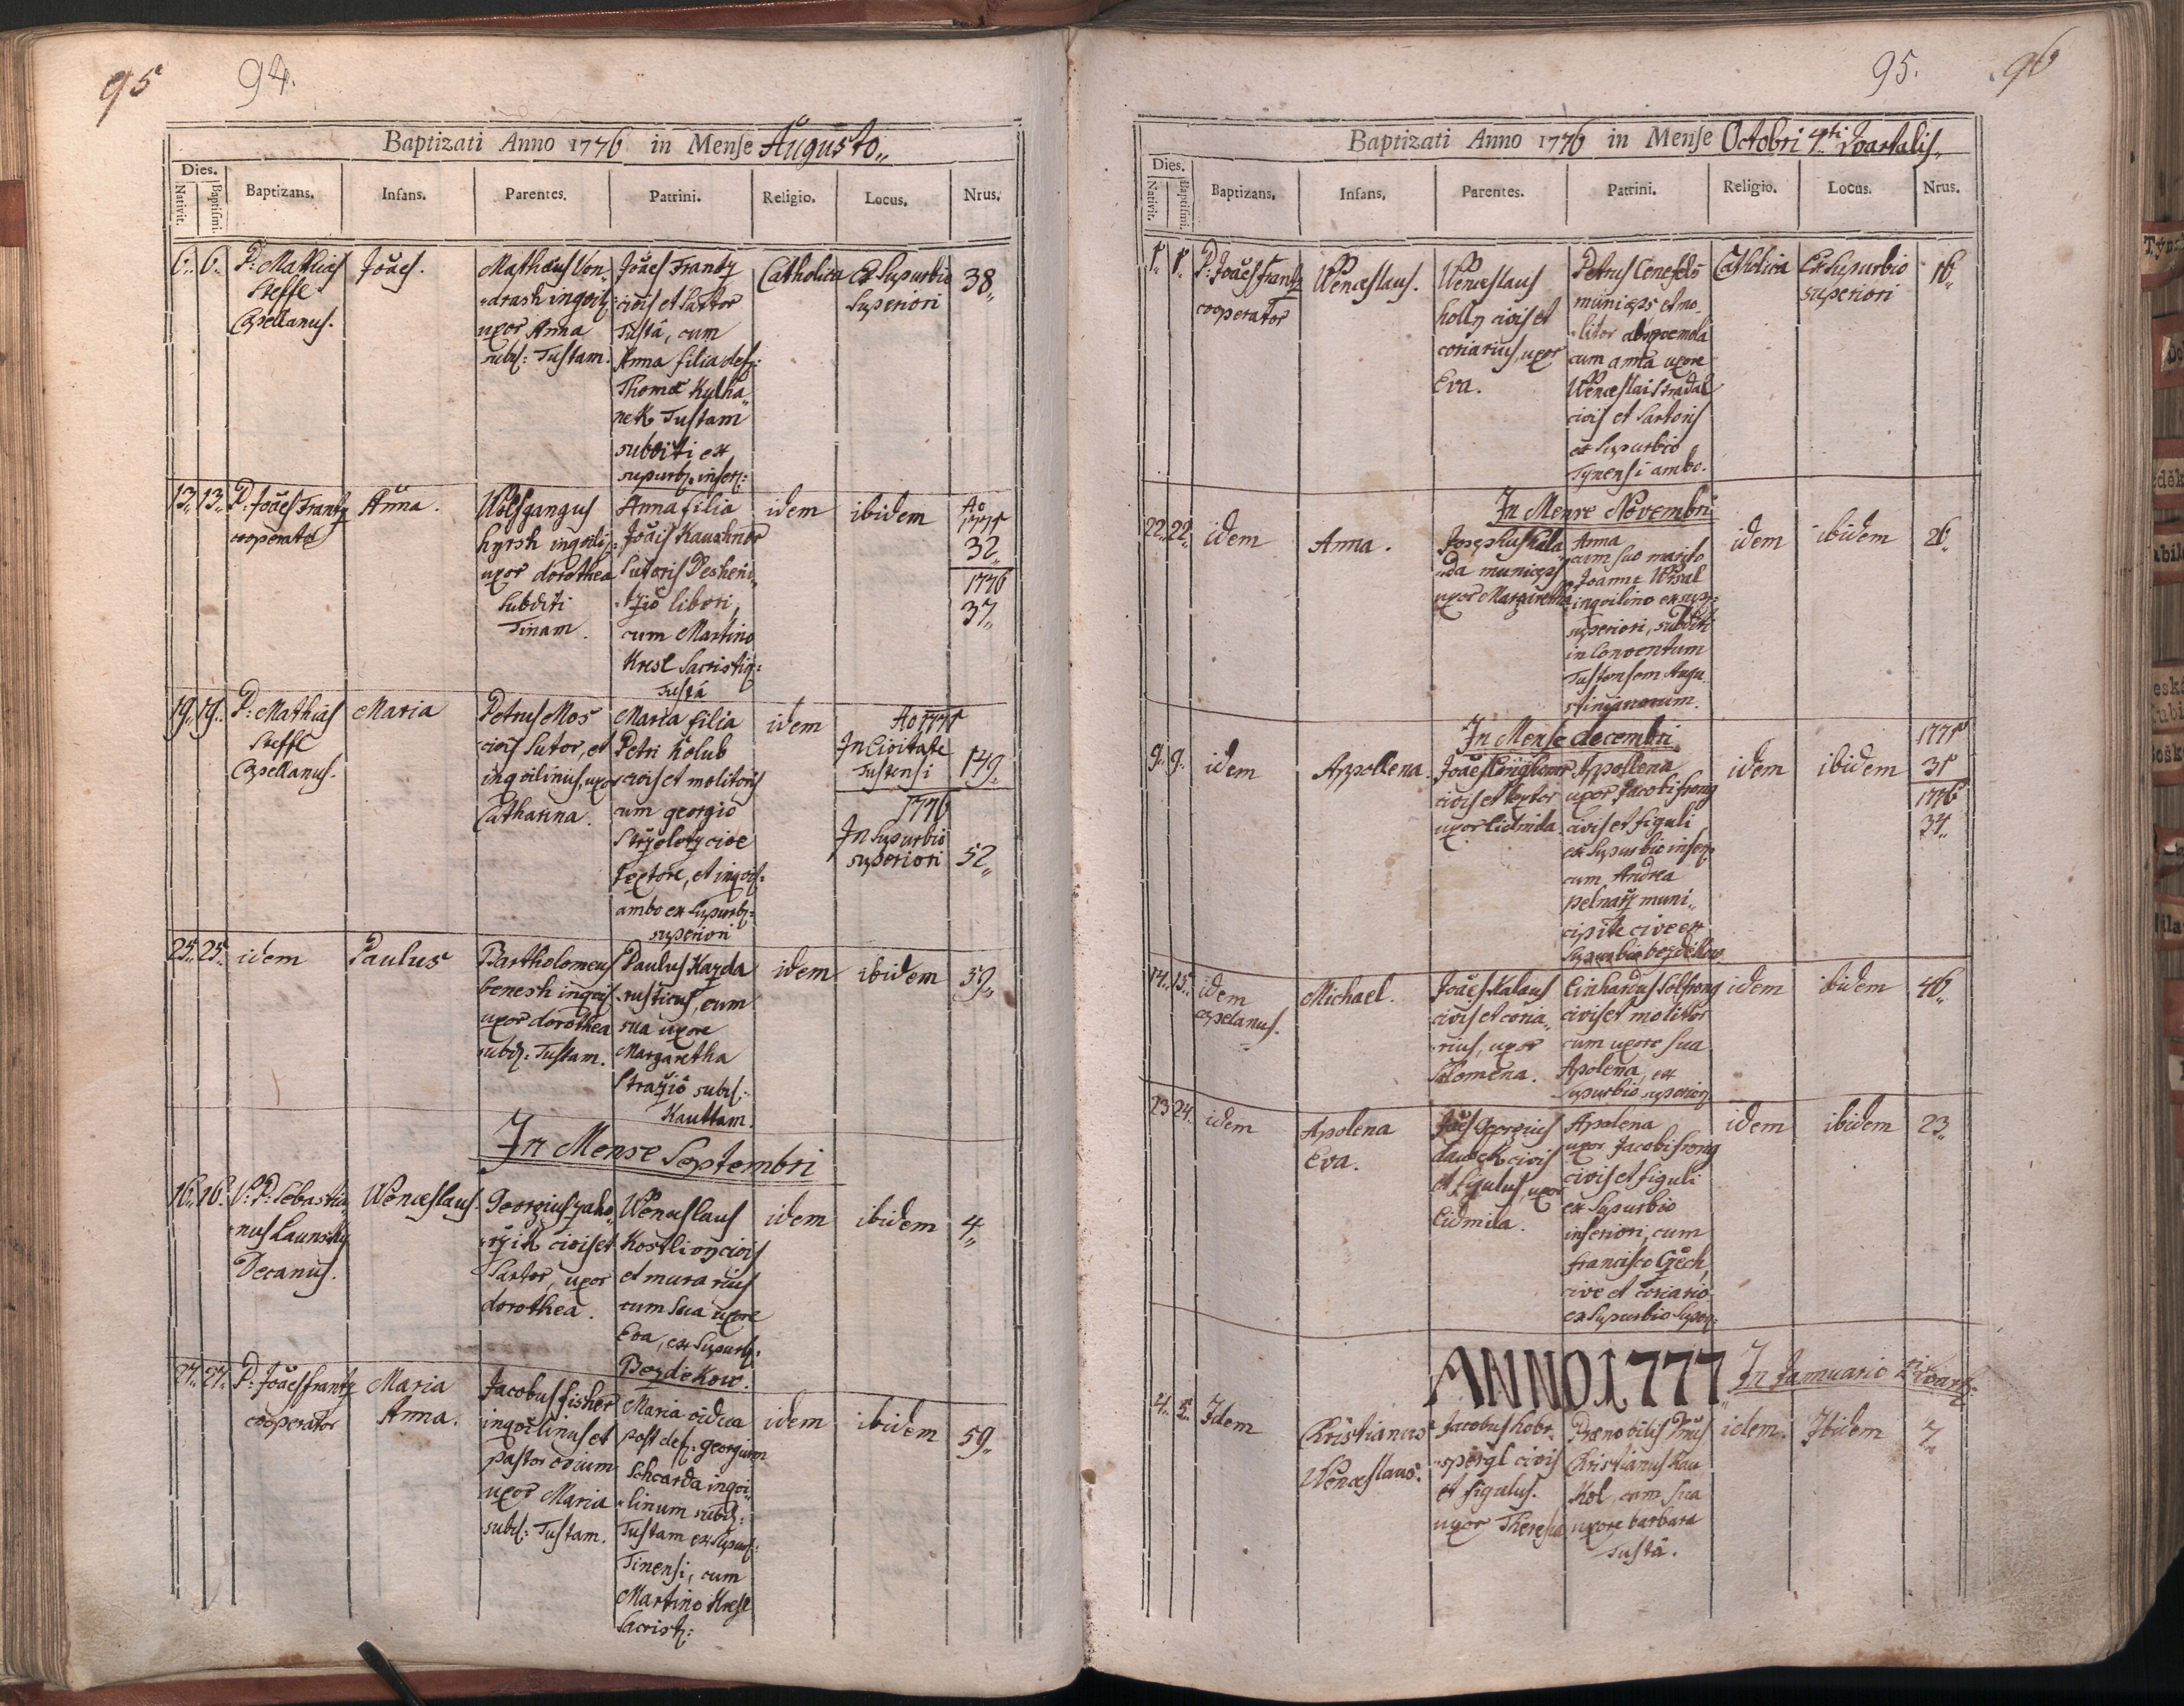 95 94.
Baptizati Anno 1776 in Mense Augusto
Dies.
Nativit. Baptismi. Baptizans. Infans. Parentes. Patrini. Religio. Locus. Nrus.
6. 6. P: Mathias
Steffl
Capellanus.
Joães.
Matheus Von
drash inqvil:
uxor Anna
subd: Tustam.
Joães Frantz
civis et Sartor
Tustã, cum
Anna filia def:
Thomæ Kylha„
nek Tustam
subditi ex
supurb: infer:
Catholica
Ex Supurbio
Superiori
38„
13„ 13„ P: Joães Frantz
cooperator
Anna.
Wolfgangus
hyrsh inqvili:
uxor dorothea
Subditi
Tinam.
Anna filia
Joãis Kauschner
Sutoris
liberi,
cum Martino
Kresl Sacristia:
Tustã
idem
ibidem
Ao
1775
32„
1776
37„
19„ 19„ P: Mathias
Steffl
Capellanus.
Maria
Petrus Mos
civis Sutor, et
inqvilinus, uxor
Catharina.
Maria filia
Petri holub
civis et molitoris
cum georgio
cive
textore, et inqvil:
ambo ex Supurb:
superiori
idem
Ao 1775
In Civitate
Tustensi
149.
1776
In Supurbio
superiori
52„
25„ 25„ idem
Paulus
Bartholomeus
benesh inqvil:
uxor dorothea
subd: Tustam.
Paulus Kazda
rusticus, cum
sua uxore
Margaretha
subd:
Kauttam.
idem
ibidem
59„
In Mense Septembri
16„ 16„ P: Sebastia
nus Launsky
Decanus.
Wenceslaus.
Georgius zaho„
rzik civis et
Sartor, uxor
dorothea.
Wenceslaus
Kostlivy civis
et murarius
cum Sua uxore
Eva, ex Supurb:
Bezdiekow.
idem
ibidem
4„
27„ 27„ P: Joães frantz
cooperator
Maria
Anna.
Jacobus fisher
inqvilinus et
pastor ovium
uxor Maria
subd: Tustam.
Maria vidua
post def: georgium
Schvarda inqvi„
linum subd:
Tustam ex Supurb:
Tinensi, cum
Martino Kresl
Sacrist:
idem
ibidem
59„
95. 96
Baptizati Anno 1776 in Mense Octobri 4ti Qvartalis„
Dies.
Nativit. Baptismi. Baptizans. Infans. Parentes. Patrini. Religio. Locus. Nrus.
P: Joães Frantz
cooperator
Wenceslaus.
Wenceslaus
holly civis et
coriarius, uxor
Eva.
Petrus
municeps, et mo„
litor
cum anna uxore
Wenceslai
civis et Sartoris
ex Supurbio
Tynensi ambo.
Catholica
Ex Supurbio
superiori
16„
In Mense Novembri
22„ 22„ idem
Anna.
Josephus
municeps
uxor Margaretha
Anna
cum suo marito
Joanne
inqvilino ex sup:
superiori, subditi
in Conventum
Tustensem Augu„
stinianorum.
idem
ibidem
26„
In Mense decembri
9„ 9„ idem
Appollena.
Joães
civis et textor
uxor Lidmila.
Appollena
uxor Jacobi frong
civis et figuli
ex Supurbio infer:
cum Andrea
pelnarz muni„
cipite cive ex
Supurbio bezdiekow
idem
ibidem
1775
35
1776
34„
14„ 15„ idem
capelanus.
Michael.
Joães Kalaus
civis et coria„
rius, uxor
Salomena.
civis et molitor
cum uxore sua
Apolena, ex
Supurbio superiori
idem
ibidem
46„
23 24„ idem
Apolena
Eva.
Joães Georgius
civis
et figulus, uxor
Lidmila.
Apolena
uxor Jacobi frong
civis et figuli
ex Supurbio
inferiori, cum
francisco Cžech,
cive et coriario
ex Supurbio Super:
idem
ibidem
23„
ANNO 1777 In Januario
4„ 5„ Idem
Christianus
Wenceslaus.
Jacobus hobr„
spergl civis
et figulus.
uxor Theresia
Prænobilis
Christianus Kau
Kol, cum Sua
uxore barbara
Tustã.
idem.
Ibidem
7„